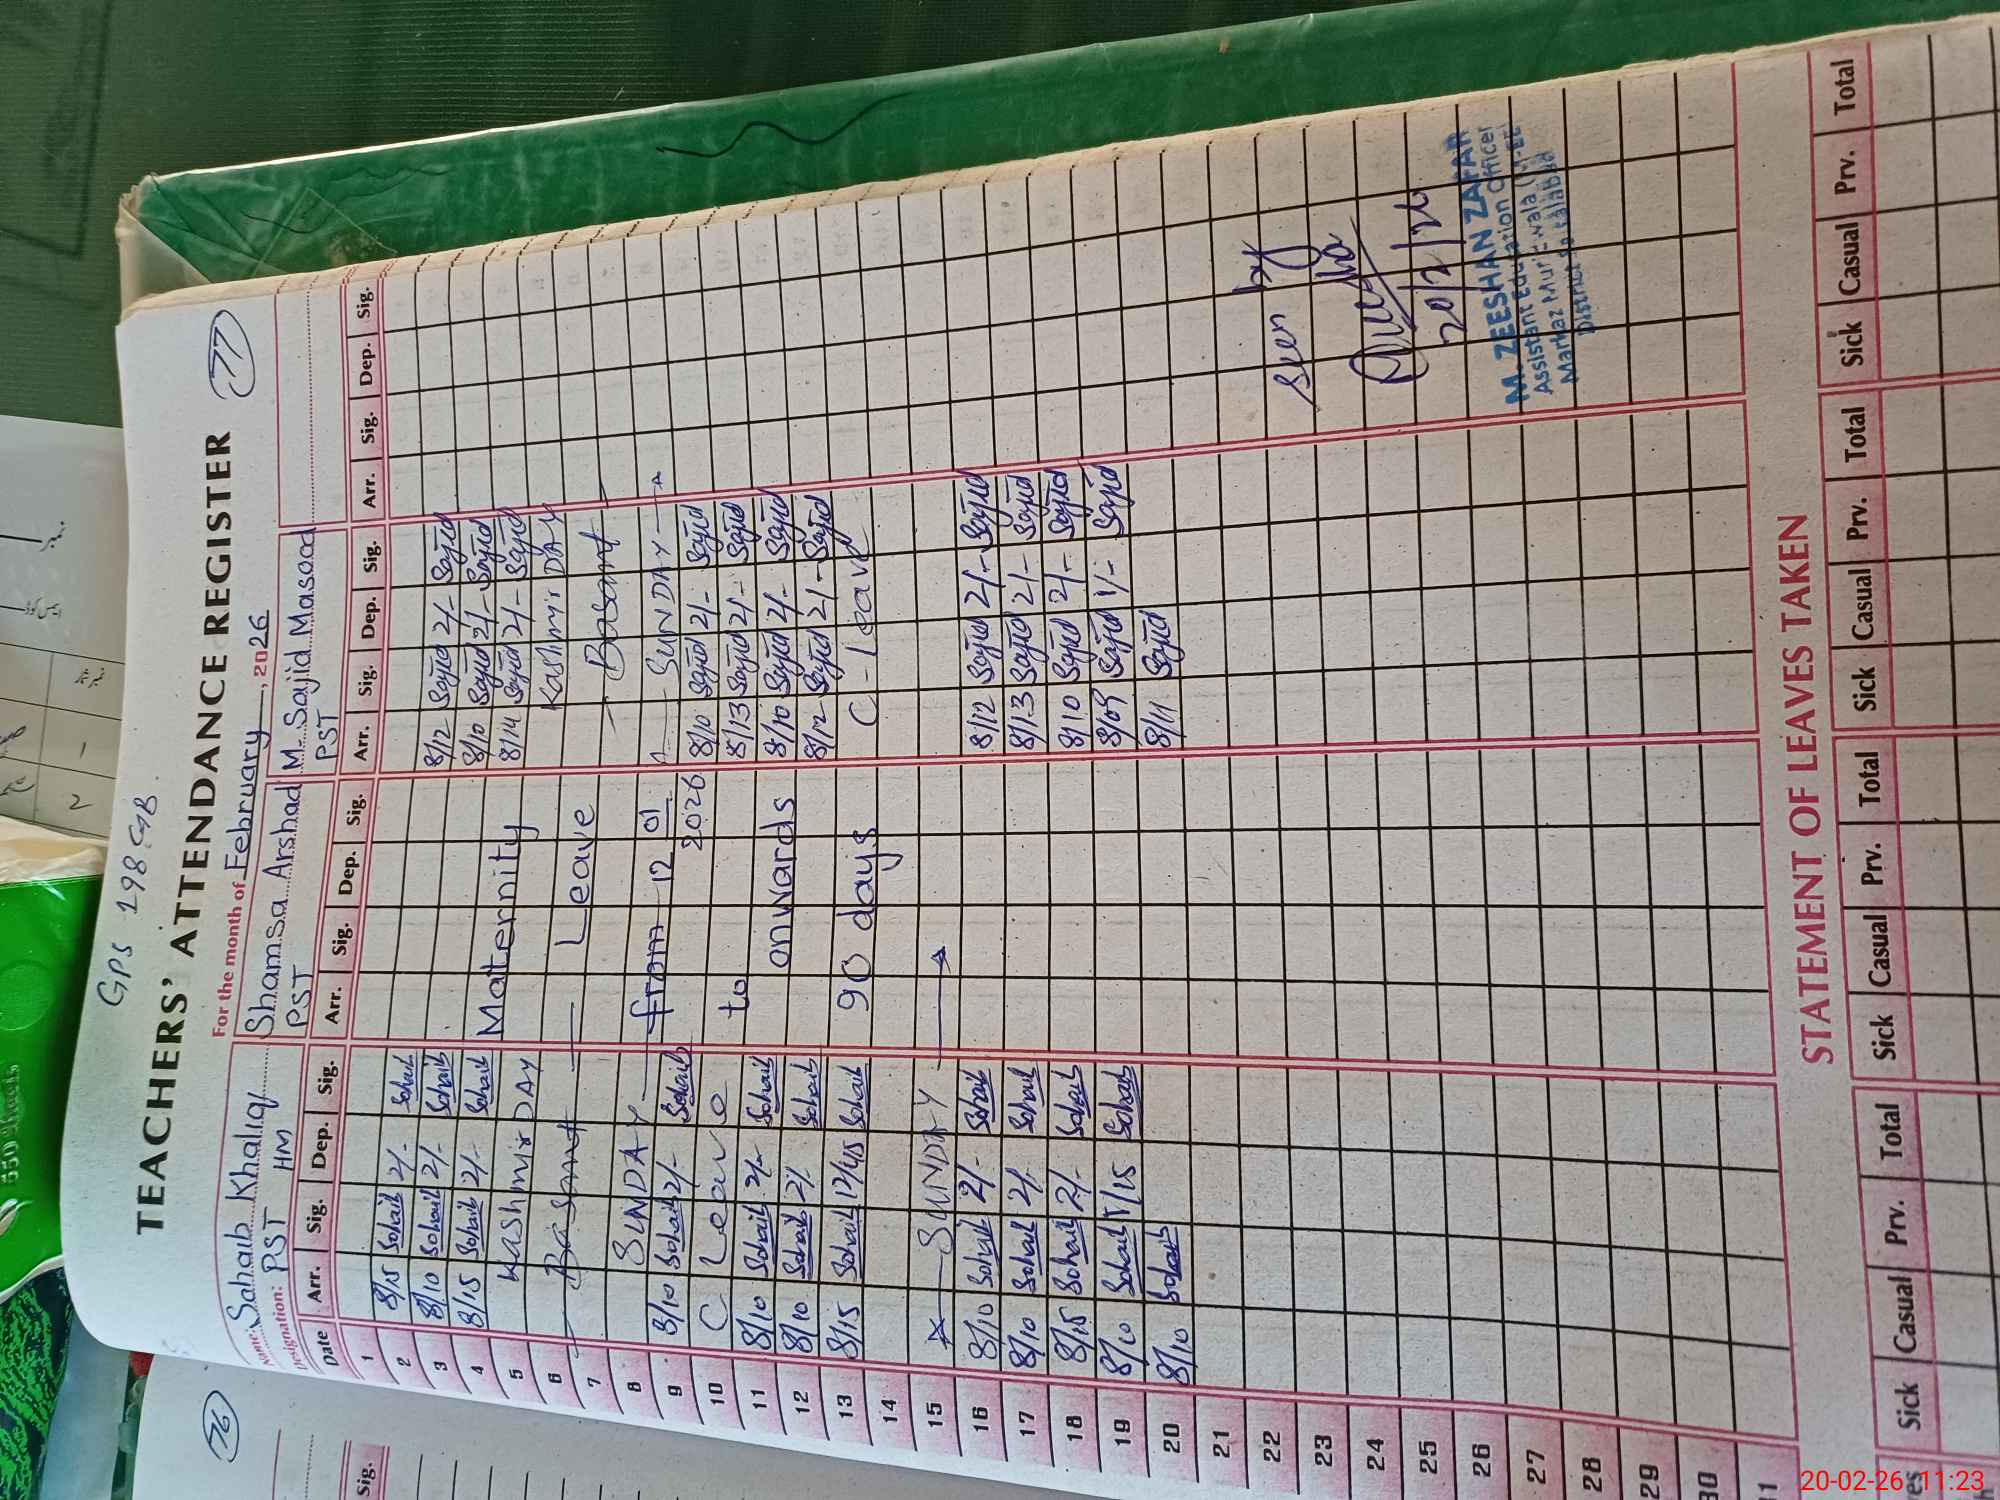 GPS 298 GB
TEACHERS' ATTENDANCE REGISTER
77
For the month of February, 2026
Name: Sohaib Khaliq Shamsa Arshad M. Sajid Masood
Designation: PST HM PST PST
Date Arr. Sig. Dep. Sig. Arr. Sig. Dep. Sig. Arr. Sig. Dep. Sig. Arr. Sig. Dep. Sig.
1
2 8/15 Sohaib 2/- Sohaib 8/12 Sajid 2/- Sajid
3 8/10 Sohaib 2/- Sohaib 8/10 Sajid 2/- Sajid
4 8/15 Sohaib 2/- Sohaib Maternity 8/14 Sajid 2/- Sajid
5 Kashmir DAY Kashmir DAY
6 Basant Leave Basant
7
8 SUNDAY from 12 01 2026 SUNDAY
9 8/10 Sohaib 2/- Sohaib 8/10 Sajid 2/- Sajid
10 C Leave to 8/13 Sajid 2/- Sajid
11 8/10 Sohaib 2/- Sohaib onwards 8/10 Sajid 2/- Sajid
12 8/10 Sohaib 2/- Sohaib 8/12 Sajid 2/- Sajid
13 8/15 Sohaib 12/45 Sohaib 90 days C - Leave
14
15 SUNDAY
16 8/10 Sohaib 2/- Sohaib 8/12 Sajid 2/- Sajid
17 8/10 Sohaib 2/- Sohaib 8/13 Sajid 2/- Sajid
18 8/15 Sohaib 2/- Sohaib 8/10 Sajid 2/- Sajid
19 8/10 Sohaib 1/15 Sohaib 8/09 Sajid 1/- Sajid
20 8/10 Sohaib 8/11 Sajid
21
22 seen by
23
24
25 20/2/26
26 M. ZEESHAN ZAFAR
27 Assistant Education Officer
28 Markaz
District
29
30
31
STATEMENT OF LEAVES TAKEN
Sick Casual Prv. Total Sick Casual Prv. Total Sick Casual Prv. Total Sick Casual Prv. Total
76
Sig.
1
2
20-02-26 11:23